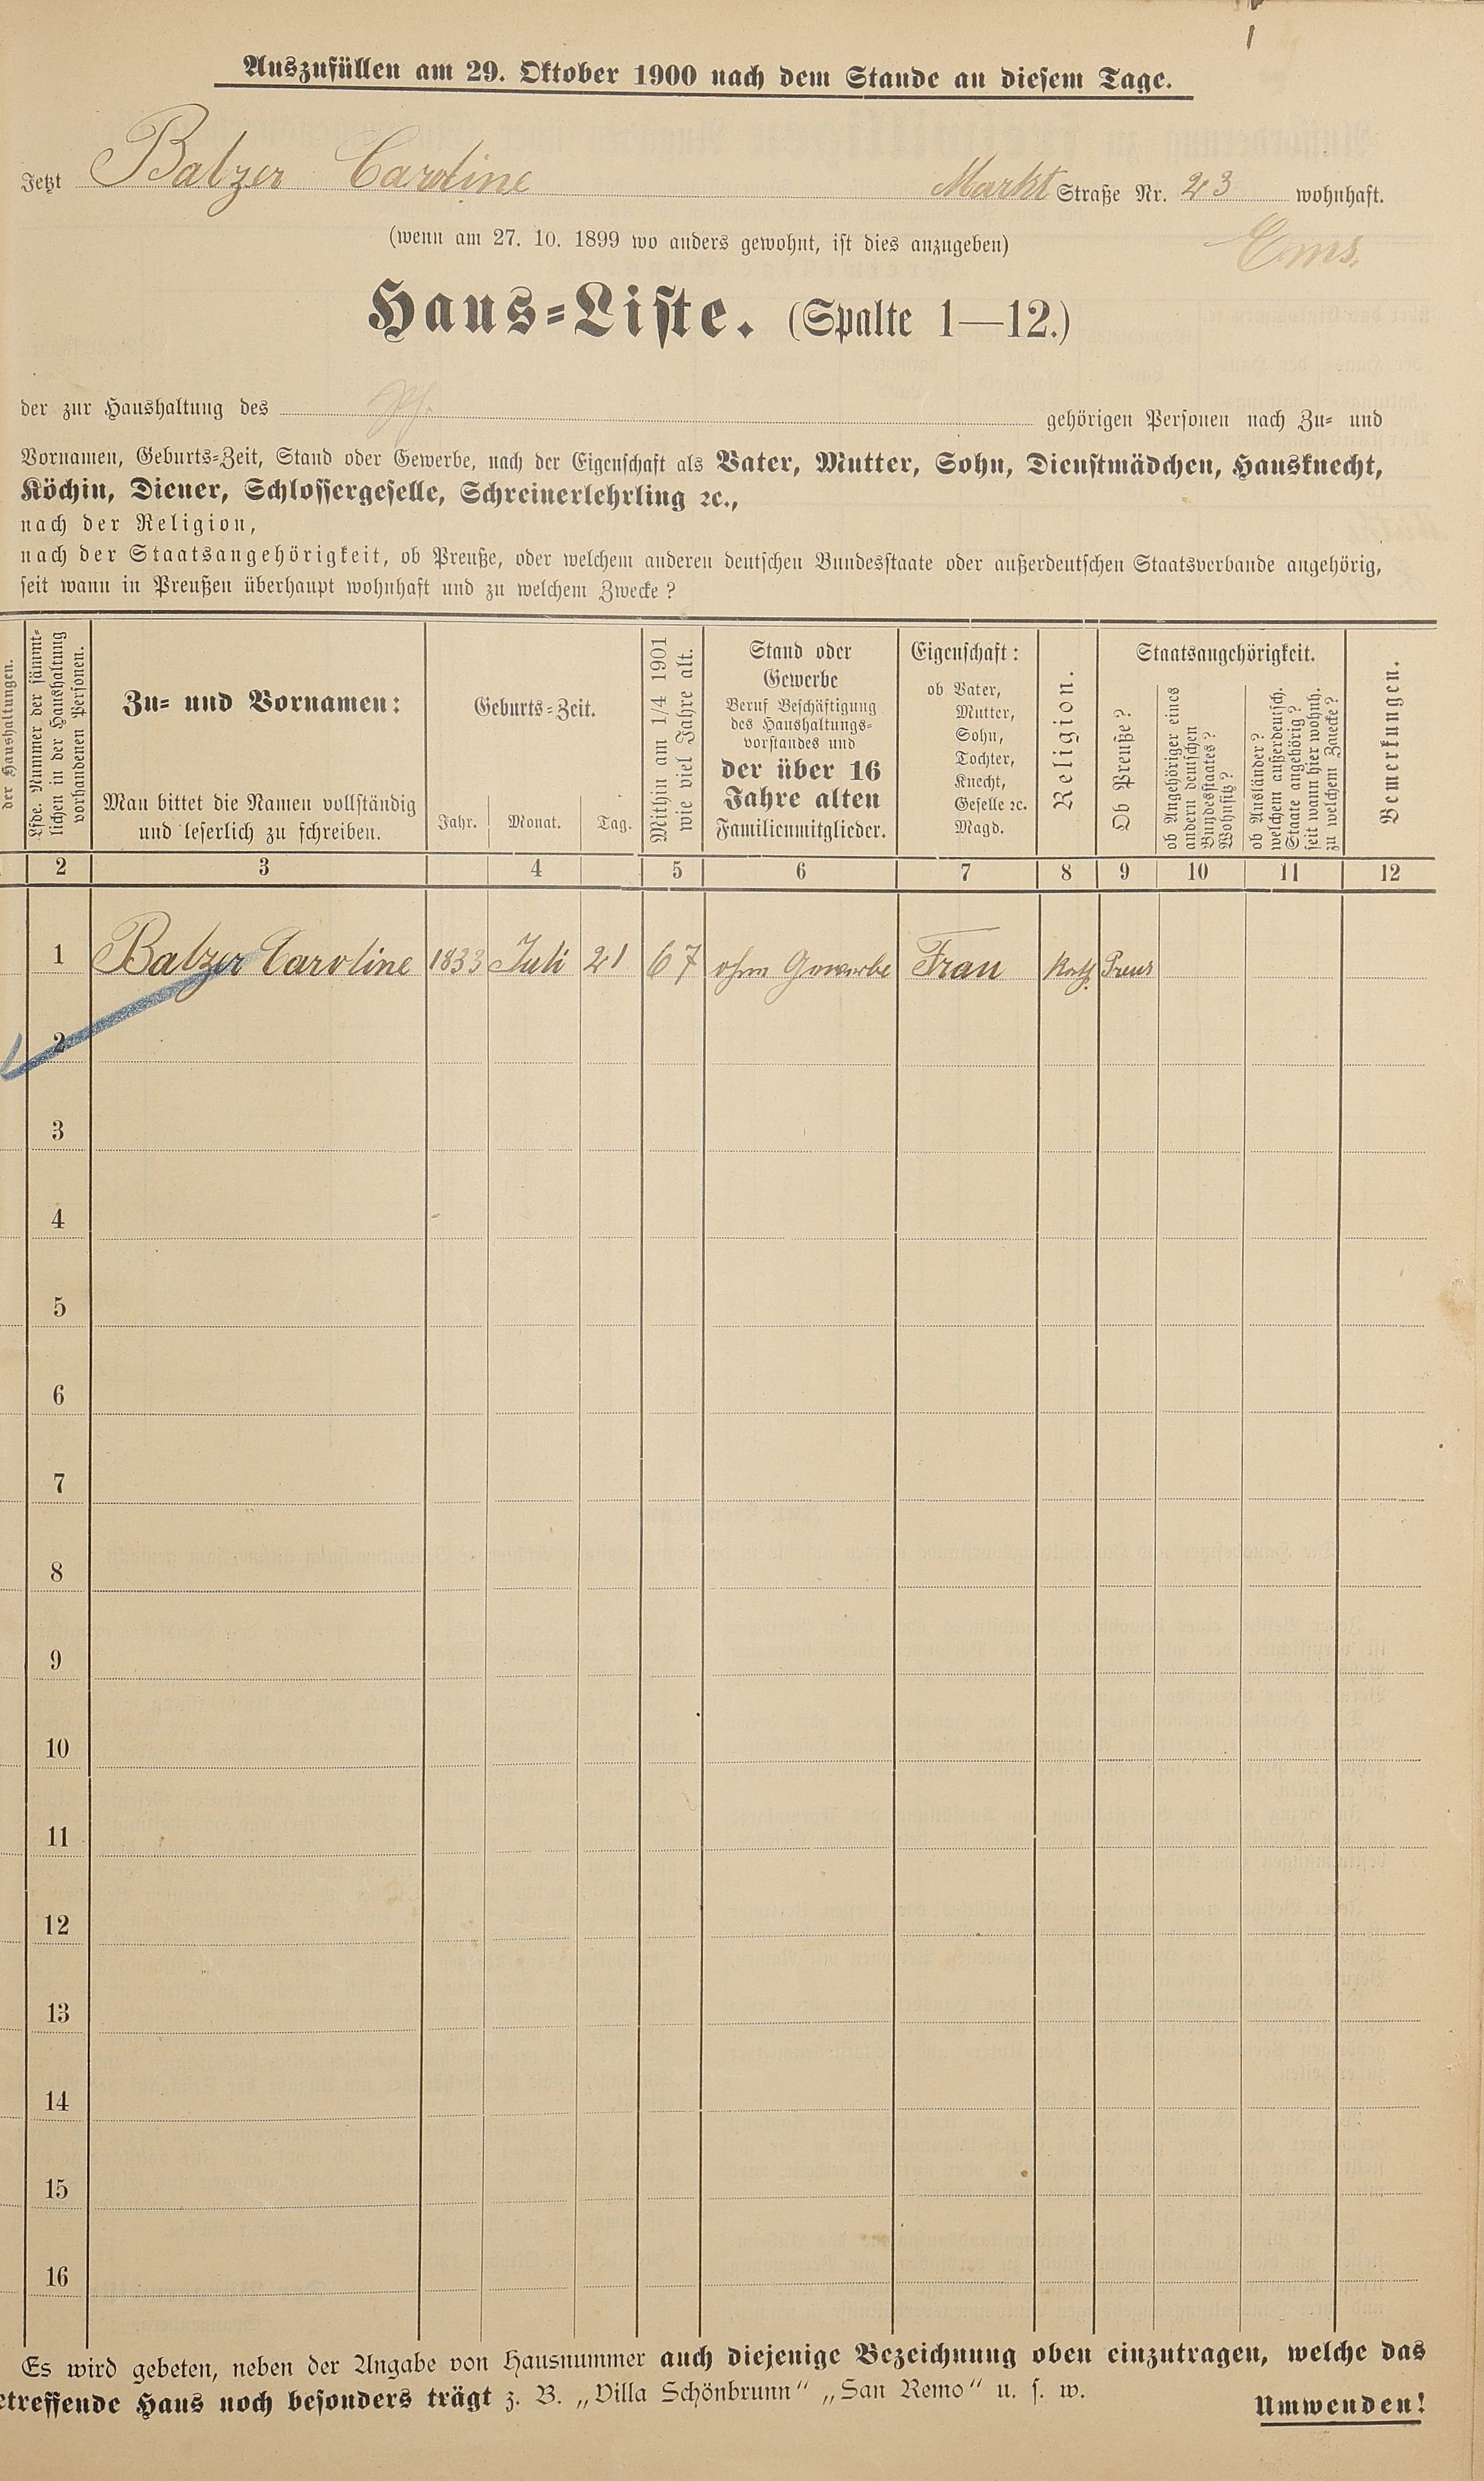 Auszufüllen am 29. Oktober 1900 nach dem Stande an diesem Tage.
Jetzt Balzer Caroline Markt Straße Nr. 23 wohnhaft.
(wenn am 27. 10. 1899 wo anders gewohnt, ist dies anzugeben) Ems.
Haus-Liste. (Spalte 1—12.)
der zur Haushaltung des gehörigen Personen nach Zu- und
Vornamen, Geburts-Zeit, Stand oder Gewerbe, nach der Eigenschaft als Vater, Mutter, Sohn, Dienstmädchen, Hausknecht,
Köchin, Diener, Schlossergeselle, Schreinerlehrling ꝛc.,
nach der Religion,
nach der Staatsangehörigkeit, ob Preuße, oder welchem anderen deutschen Bundesstaate oder außerdeutschen Staatsverbande angehörig,
seit wann in Preußen überhaupt wohnhaft und zu welchem Zwecke?
der Haushaltungen.
Lfde. Nummer der sämmt-
lichen in der Haushaltung
vorhandenen Personen.
Zu- und Vornamen:
Man bittet die Namen vollständig
und leserlich zu schreiben.
Geburts-Zeit.
Jahr. Monat. Tag.
Mithin am 1/4 1901
wie viel Jahre alt.
Stand oder
Gewerbe
Beruf Beschäftigung
des Haushaltungs-
vorstandes und
der über 16
Jahre alten
Familienmitglieder.
Eigenschaft:
ob Vater,
Mutter,
Sohn,
Tochter,
Knecht,
Geselle ꝛc.
Magd.
Religion.
Staatsangehörigkeit.
Ob Preuße?
ob Angehöriger eines
andern deutschen
Bundesstaates?
Wohnsitz?
ob Ausländer?
welchem außerdeutsch.
Staate angehörig?
seit wann hier wohnh.
zu welchem Zwecke?
Bemerkungen.
2 3 4 5 6 7 8 9 10 11 12
1 Balzer Caroline 1833 Juli 21 67 ohne Gewerbe Frau Kath. Preus
2
3
4
5
6
7
8
9
10
11
12
13
14
15
16
Es wird gebeten, neben der Angabe von Hausnummer auch diejenige Bezeichnung oben einzutragen, welche das
etreffende Haus noch besonders trägt z. B. „Villa Schönbrunn“ „San Remo“ u. s. w.
Umwenden!